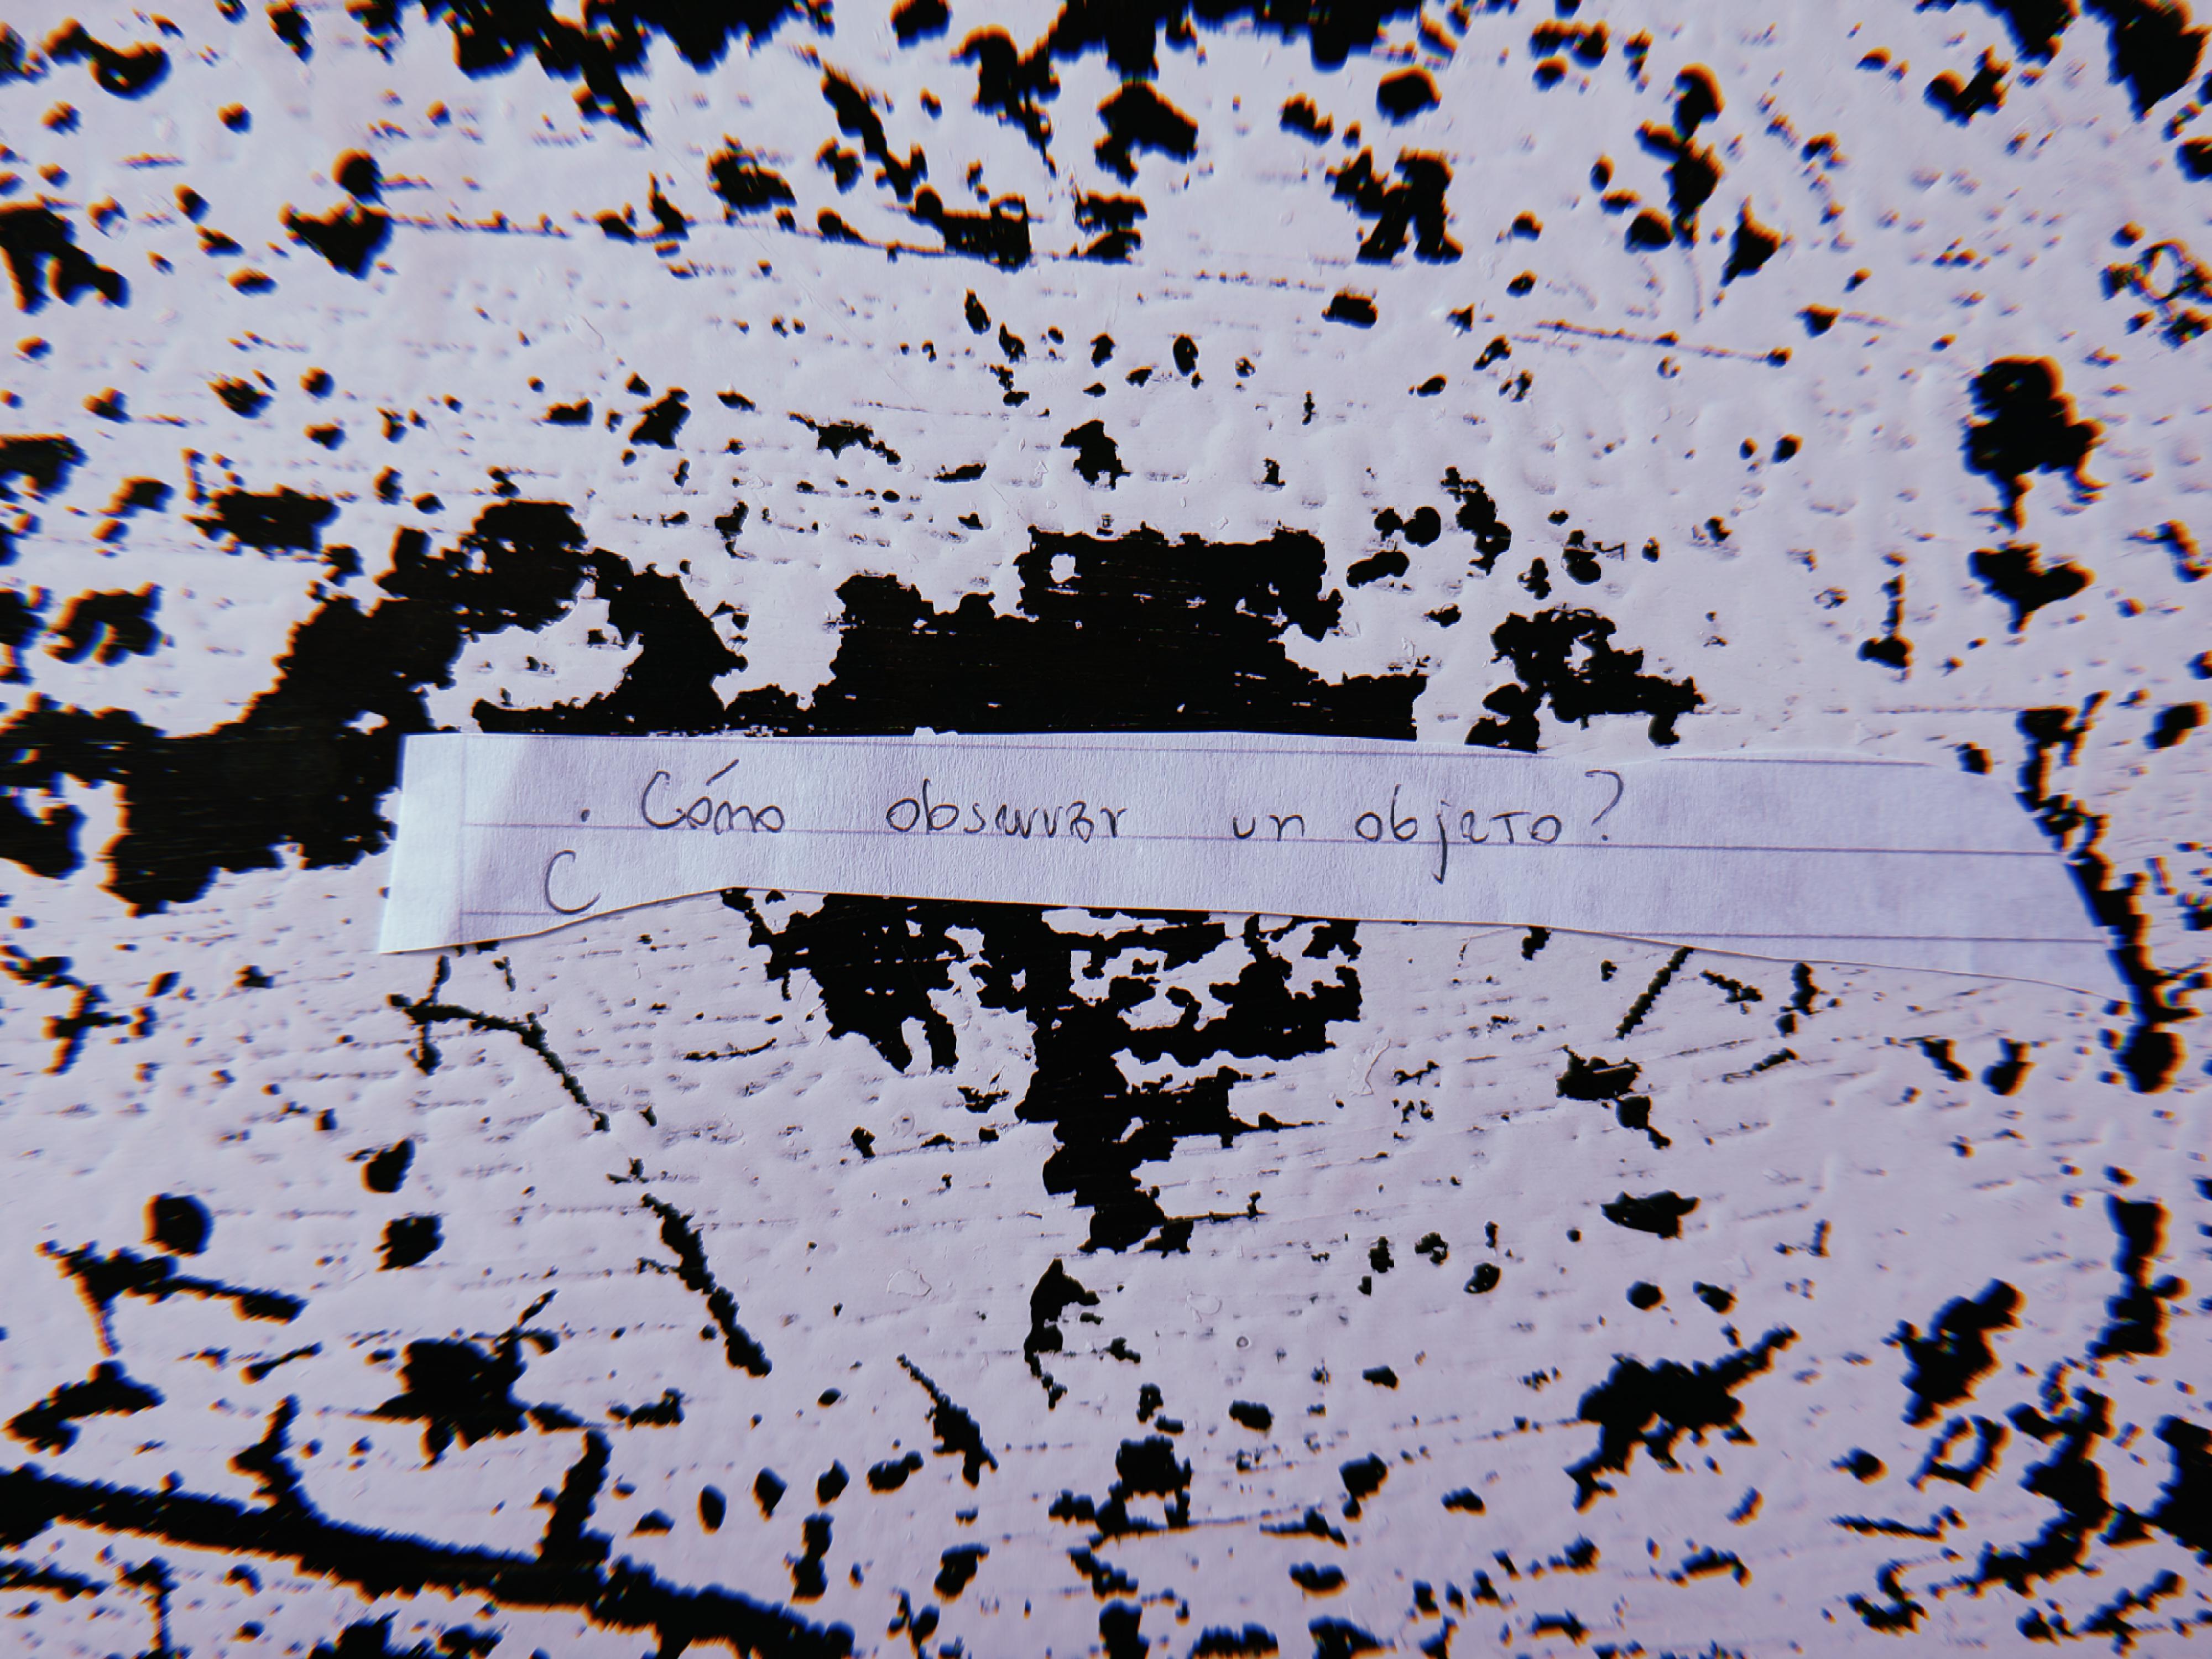 ¿Cómo observar un objeto?